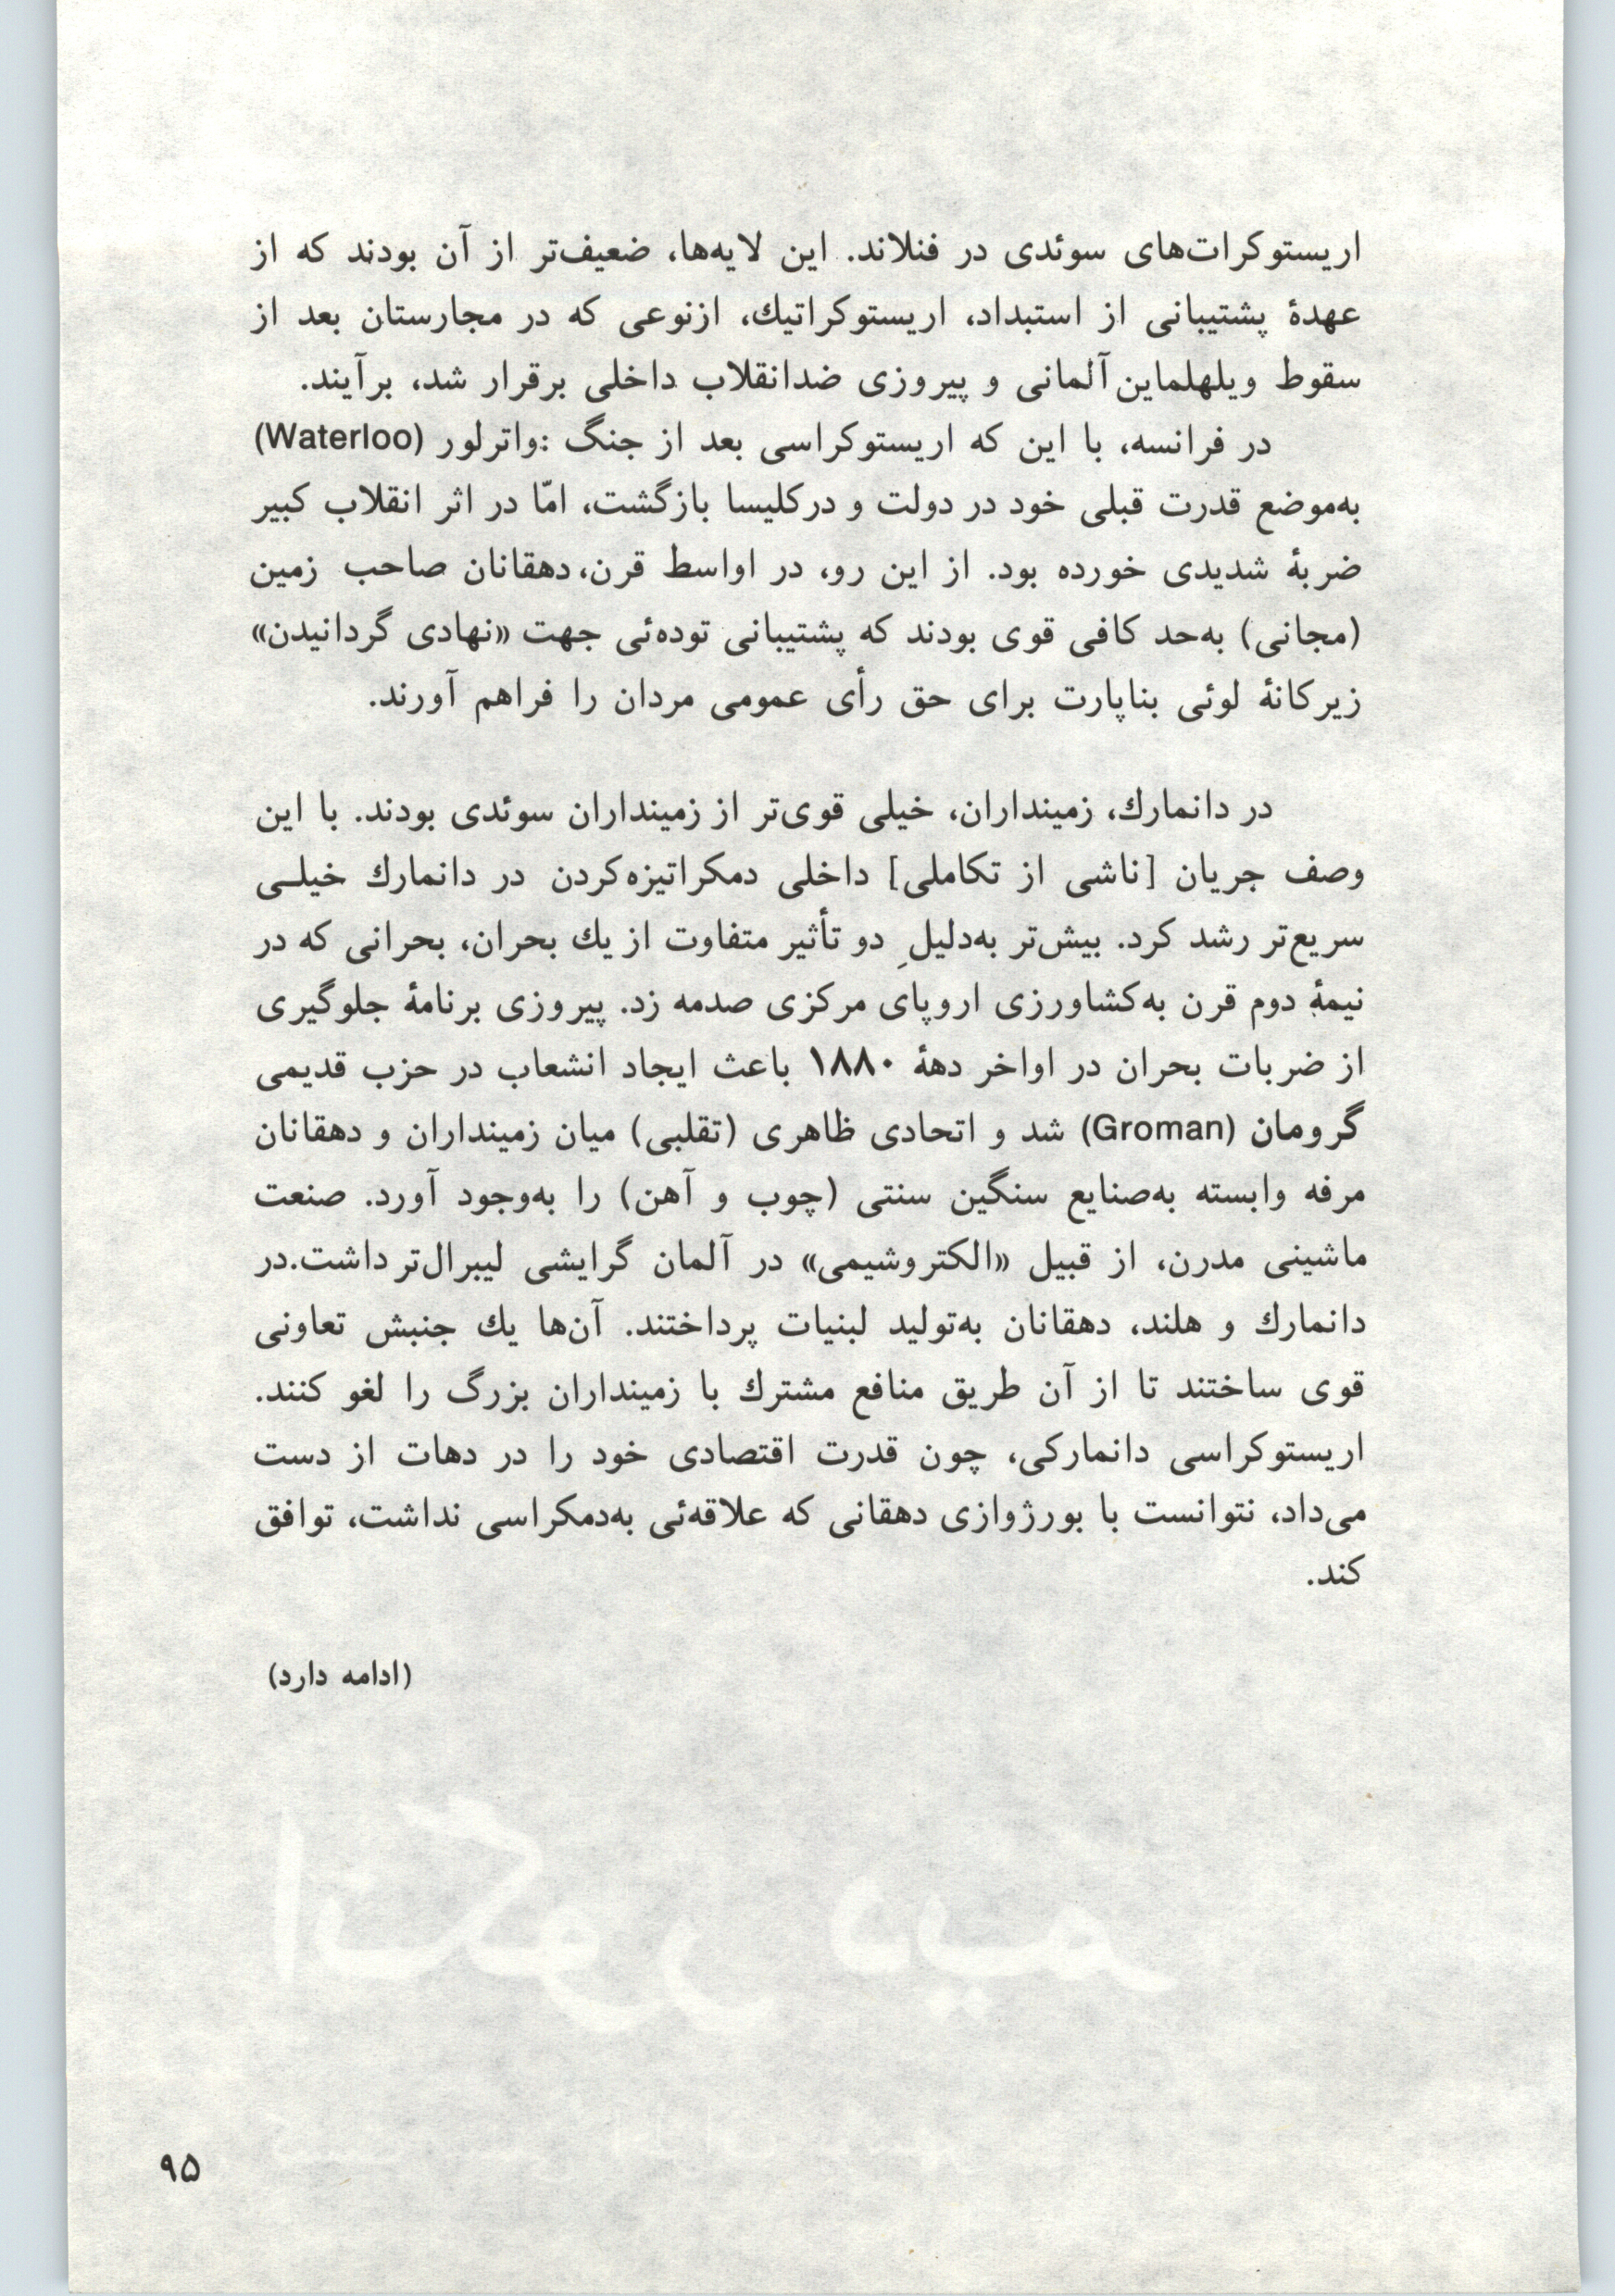 اریستوکرات‌های سوئدی در فنلاند. این لایه‌ها، ضعیف‌تر از آن بودند که از
عهدهٔ پشتیبانی از استبداد، اریستوکراتیك، ازنوعی که در مجارستان بعد از
سقوط ویلهلماین آلمانی و پیروزی ضدانقلاب داخلی برقرار شد، برآیند.
در فرانسه، با این که اریستوکراسی بعد از جنگ :واترلور (Waterloo)
به‌موضع قدرت قبلی خود در دولت و درکلیسا بازگشت، امّا در اثر انقلاب کبیر
ضربهٔ شدیدی خورده بود. از این رو، در اواسط قرن، دهقانان صاحب زمین
(مجانی) به‌حد کافی قوی بودند که پشتیبانی توده‌ئی جهت «نهادی گردانیدن»
زیرکانهٔ لوئی بناپارت برای حق رأی عمومی مردان را فراهم آورند.
در دانمارك، زمینداران، خیلی قوی‌تر از زمینداران سوئدی بودند. با این
وصف جریان [ناشی از تکاملی] داخلی دمکراتیزه‌کردن در دانمارك خیلـی
سریع‌تر رشد کرد. بیش‌تر به‌دلیلِ دو تأثیر متفاوت از یك بحران، بحرانی که در
نیمهٔ دوم قرن به‌کشاورزی اروپای مرکزی صدمه زد. پیروزی برنامهٔ جلوگیری
از ضربات بحران در اواخر دههٔ ۱۸۸۰ باعث ایجاد انشعاب در حزب قدیمی
گرومان (Groman) شد و اتحادی ظاهری (تقلبی) میان زمینداران و دهقانان
مرفه وابسته به‌صنایع سنگین سنتی (چوب و آهن) را به‌وجود آورد. صنعت
ماشینی مدرن، از قبیل «الکتروشیمی» در آلمان گرایشی لیبرال‌تر داشت.در
دانمارك و هلند، دهقانان به‌تولید لبنیات پرداختند. آن‌ها یك جنبش تعاونی
قوی ساختند تا از آن طریق منافع مشترك با زمینداران بزرگ را لغو کنند.
اریستوکراسی دانمارکی، چون قدرت اقتصادی خود را در دهات از دست
می‌داد، نتوانست با بورژوازی دهقانی که علاقه‌ئی به‌دمکراسی نداشت، توافق
کند.
(ادامه دارد)
۹۵